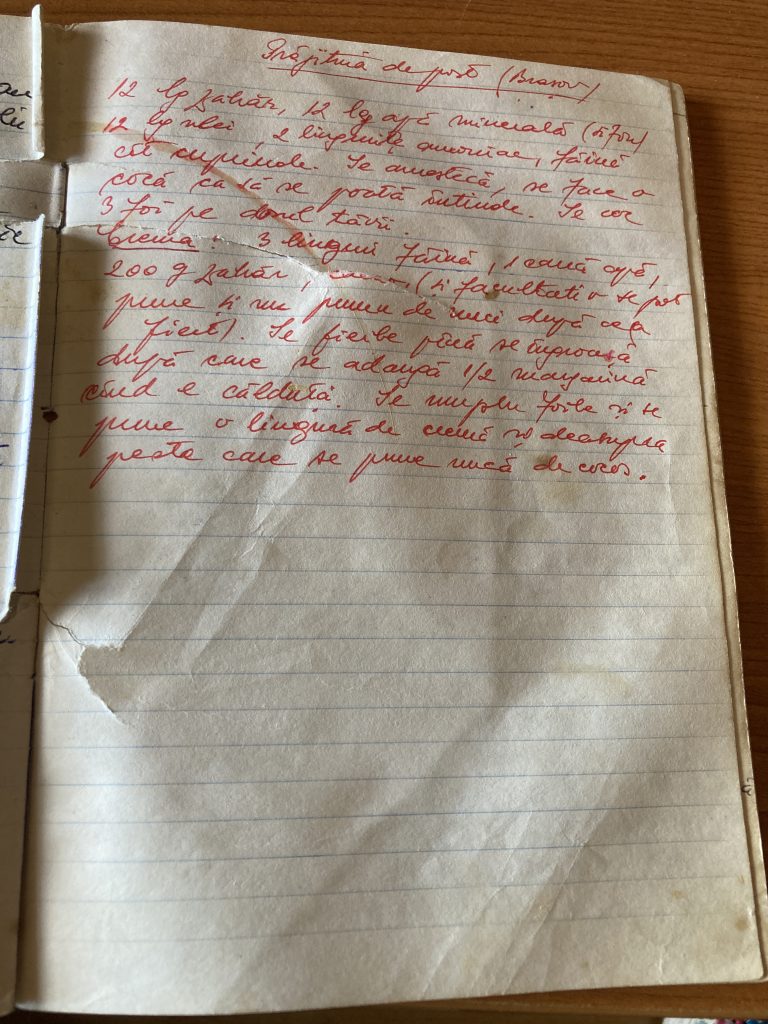 Prăjitură de post (Brașov)
12 lg zahăr, 12 lg apă minerală (sifon)
12 lg ulei, 2 lingurițe amoniac, făină
cât cuprinde. Se amestecă, se face o
cocă ca să se poată întinde. Se coc
3 foi pe dosul tăvii.
Crema: 3 linguri făină, 1 cană apă,
200 g zahăr, (și facultativ se pot
pune și nuci după ce a
fiert). Se fierbe până se îngroașă
după care se adaugă 1/2 margarină
când e călduță. Se umplu foile și se
pune o lingură de cremă și deasupra
peste care se pune nucă de cocos.